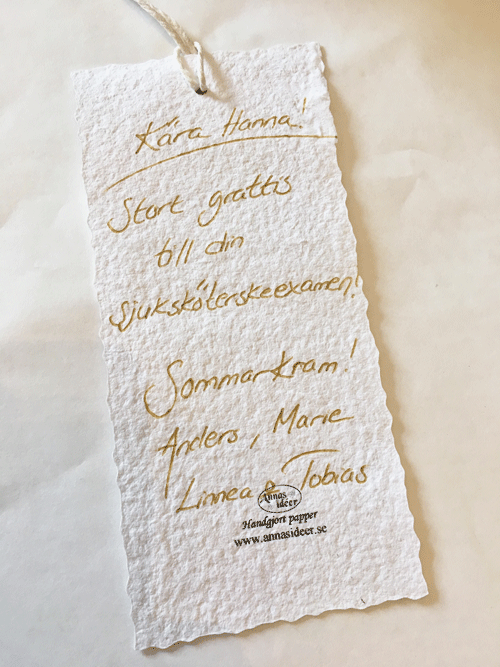 Kära Hanna!
Stort grattis
till din
sjuksköterskeexamen!
Sommarkram!
Anders, Marie
Linnea & Tobias
Annas
ideer
Handgjort papper
www.annasideer.se